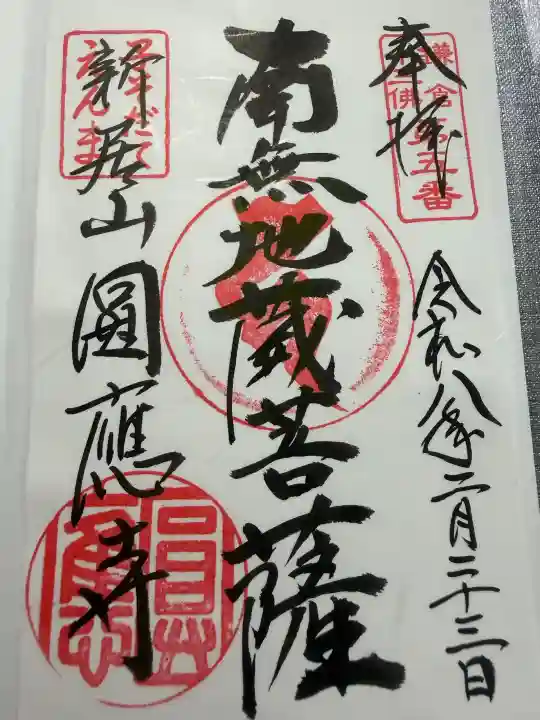 奉拝
鎌倉
佛
第五番
令和八年二月二十三日
南無地蔵菩薩
新居山圓應寺
圓應